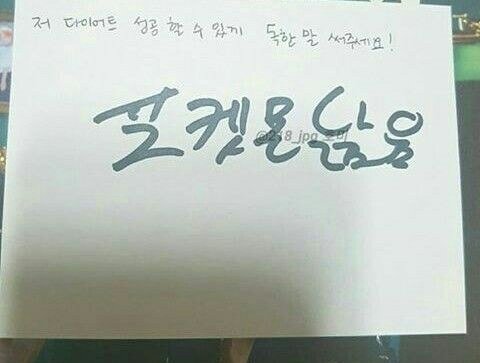 저 다이어트 성공할 수 있게 독한 말 써주세요!
포켓몬닮음
@218_jpg